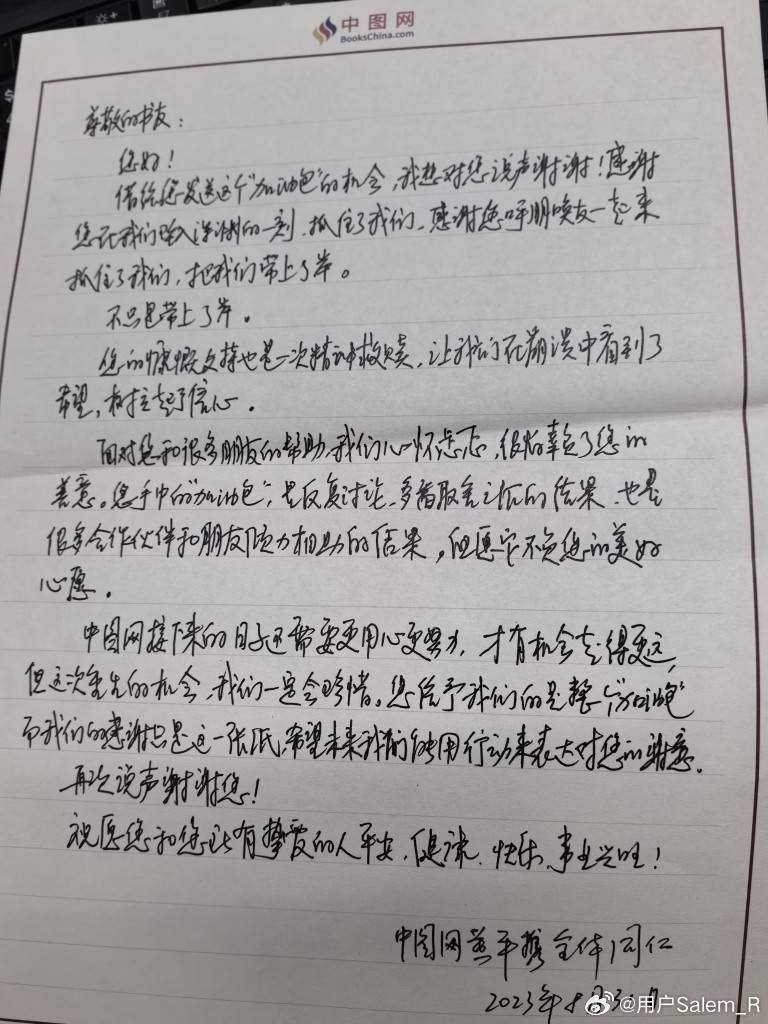 中图网
BooksChina.com
尊敬的书友：
您好！
借给您发送这个"加油包"的机会，我想对您说声谢谢！感谢
您在我们坠入深渊的一刻，抓住了我们，感谢您呼朋唤友一起来
抓住了我们，把我们带上了岸。
不只是带上了岸。
您的慷慨支持也是一次精神救赎，让我们在崩溃中看到了
希望，树立起了信心。
面对您和很多朋友的帮助，我们心怀忐忑，很怕辜负了您的
善意。您手中的"加油包"，是反复讨论、多番取舍之后的结果，也是
很多合作伙伴和朋友倾力相助的结果，但愿它不负您的美好
心愿。
中图网接下来的日子还需要更用心更努力，才有机会走得更远，
但这次重生的机会，我们一定会珍惜。您给予我们的是整个"加油包"
而我们的感谢只是这一张纸，希望未来我们能用行动来表达对您的谢意。
再次说声谢谢您！
祝愿您和您所有挚爱的人平安、健康、快乐、事业兴旺！
中图网黄平携全体同仁
2023年8月
@用户Salem_R